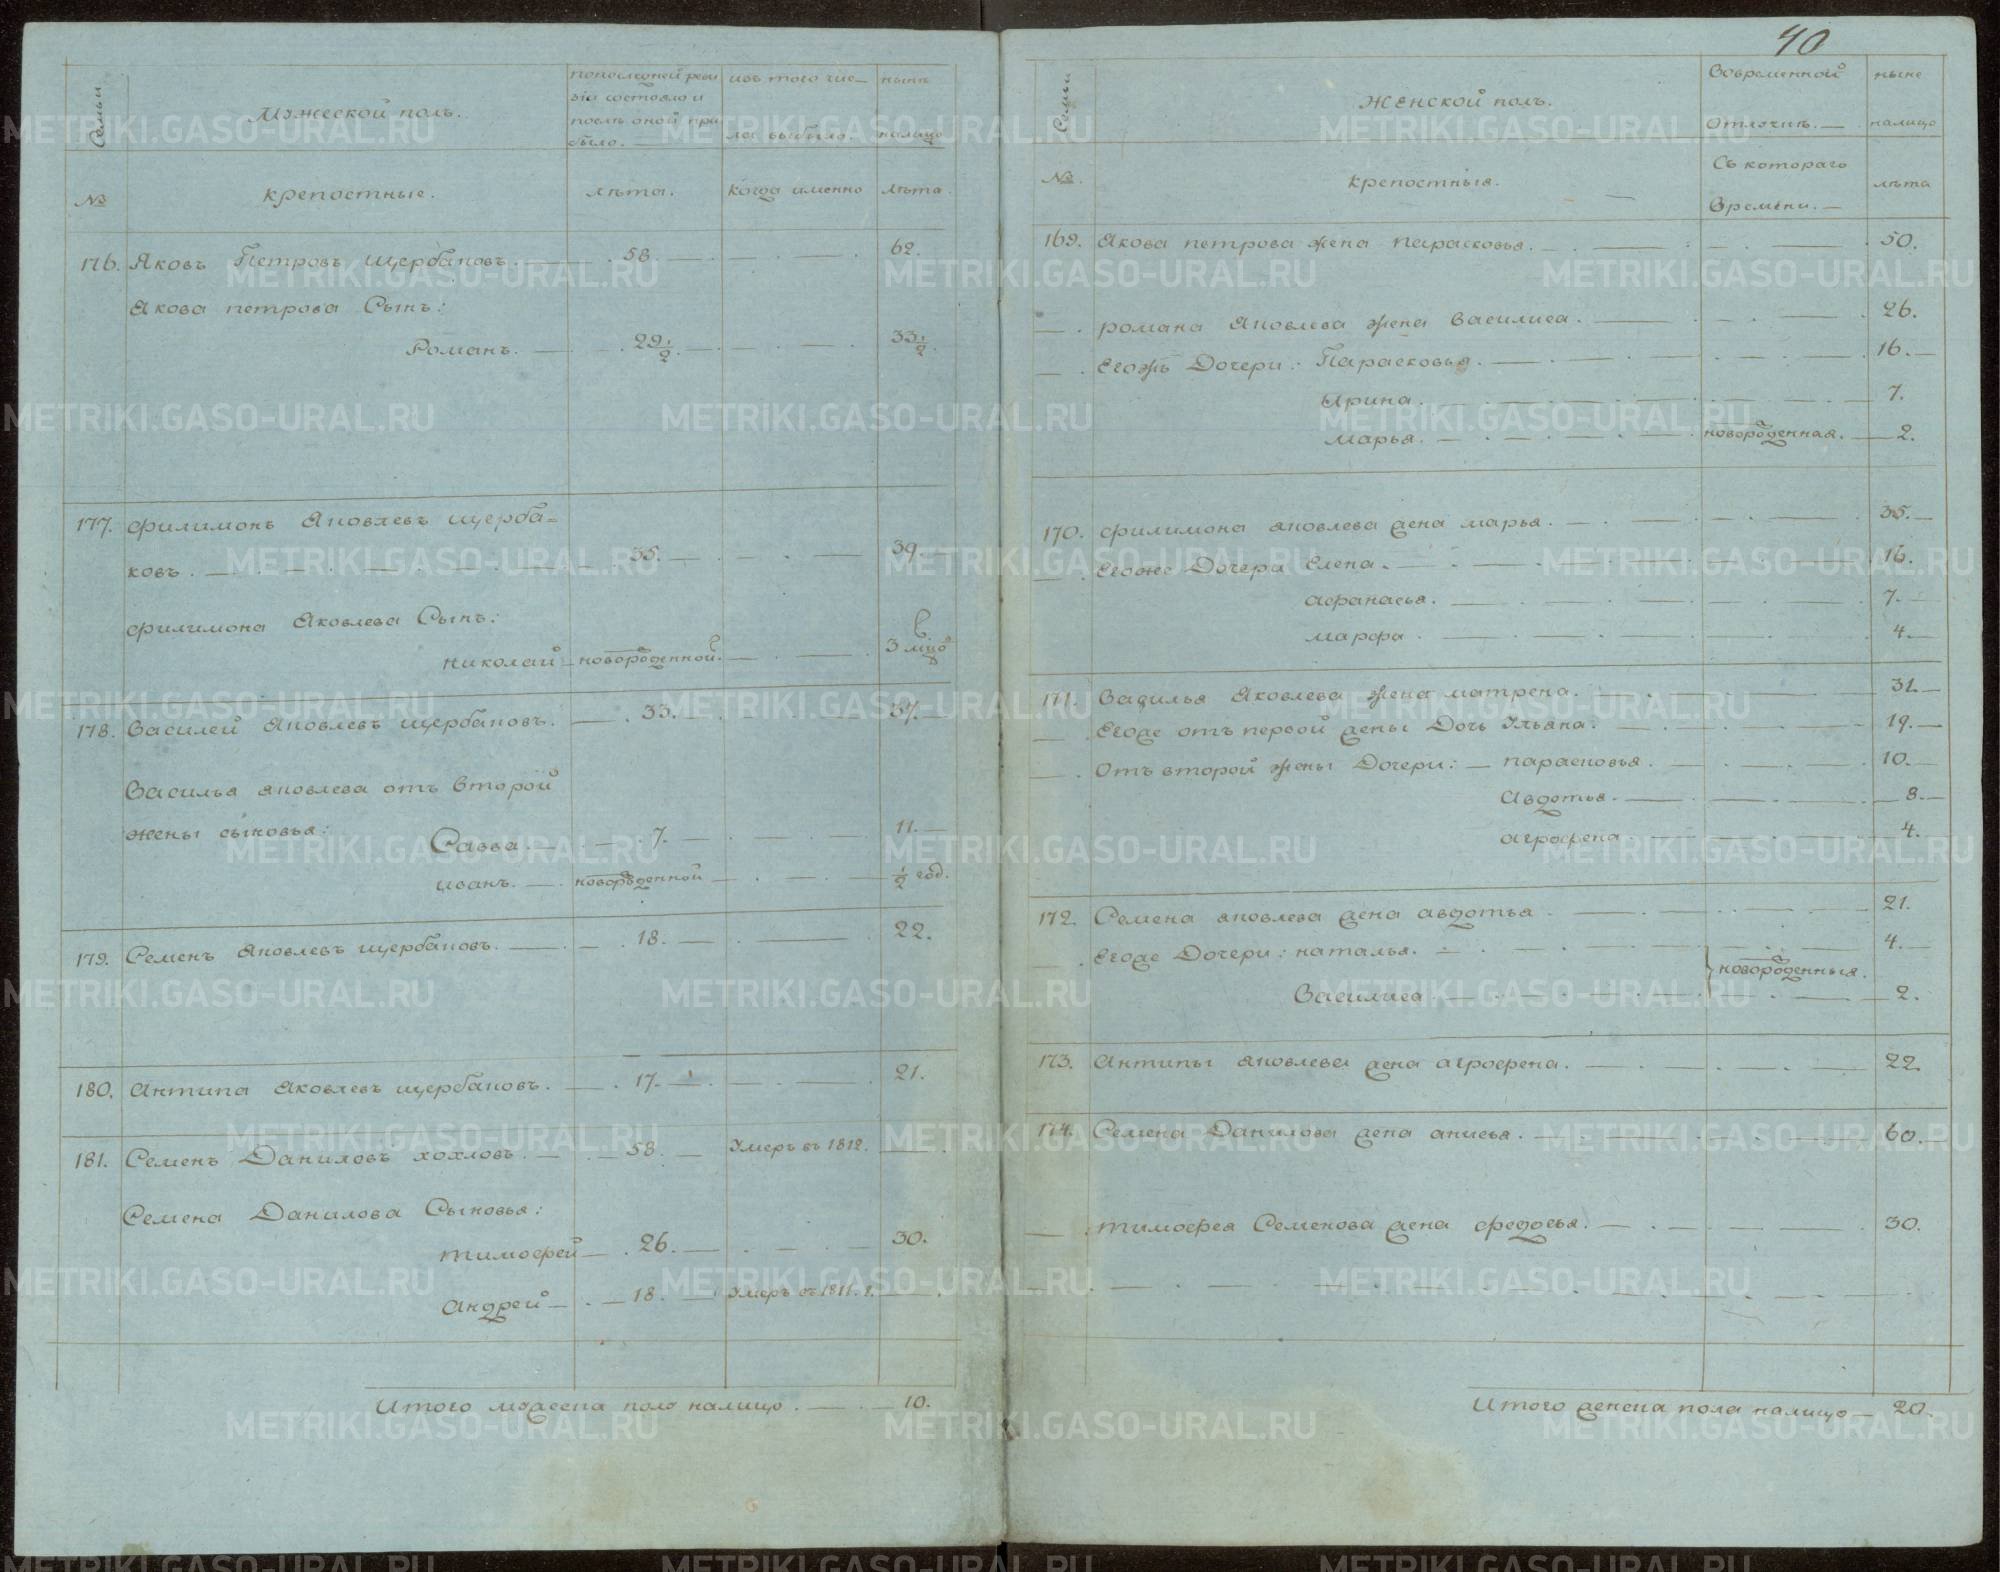 40
Семьи
Мужеской полъ.
попоследней реви
зіи состояло и
послѣ оной при
было.
изъ того чис–
ла выбыло.
нынѣ
налицо
№
крепостные.
лѣта.
когда именно
лѣта.
176. Яковъ Петровъ Щербаковъ. 58. 62.
Якова петрова Сынъ:
Романъ. 29 1/2. 33 1/2.
177. Филимонъ Яковлевъ щерба=
ковъ. 35. 39.
филимона Яковлева Сынъ:
Николай новорожденной.
178. Василей Яковлевъ щербаковъ. 33. 37.
Василья яковлева отъ второй
жены сыновья:
Савва. 7. 11.
иванъ. новорожденной 1/2 год.
179. Семенъ Яковлевъ щербаковъ. 18. 22.
180. Антипа Яковлевъ щербаковъ. 17. 21.
181. Семенъ Даниловъ хохловъ. 58. Умеръ въ 1812.
Семена Данилова Сыновья:
тимофей 26. 30.
Андрей 18. Умеръ въ 1811. г.
Итого мужеска пола налицо. 10.
Семьи
Женской полъ.
Вовременной
Отлучкѣ.
ныне
налицо
№.
крепостныя.
Съ котораго
Времени.
лѣта
169. Якова петрова жена Парасковья. 50.
романа Яковлева жена Василиса. 26.
Егожъ Дочери: Парасковья. 16.
Ирина. 7.
марья. новорожденная. 2.
170. филимона яковлева жена марья. 35.
Егоже Дочери Елена. 16.
афанасья. 7.
марфа. 4.
171. Василья Яковлева жена матрена. 31.
Егоже отъ первой жены Дочь Ульяна. 19.
Отъ второй жены Дочери: парасковья. 10.
Авдотья. 8.
агрофена. 4.
172. Семена яковлева жена авдотья. 21.
Егоже Дочери: наталья. 4.
новорожденныя.
Василиса. 2.
173. Антипы яковлева жена агрофена. 22.
174. Семена Данилова жена анисья. 60.
тимофея Семенова жена федосья. 30.
Итого женска пола налицо 20.
METRIKI.GASO-URAL.RU